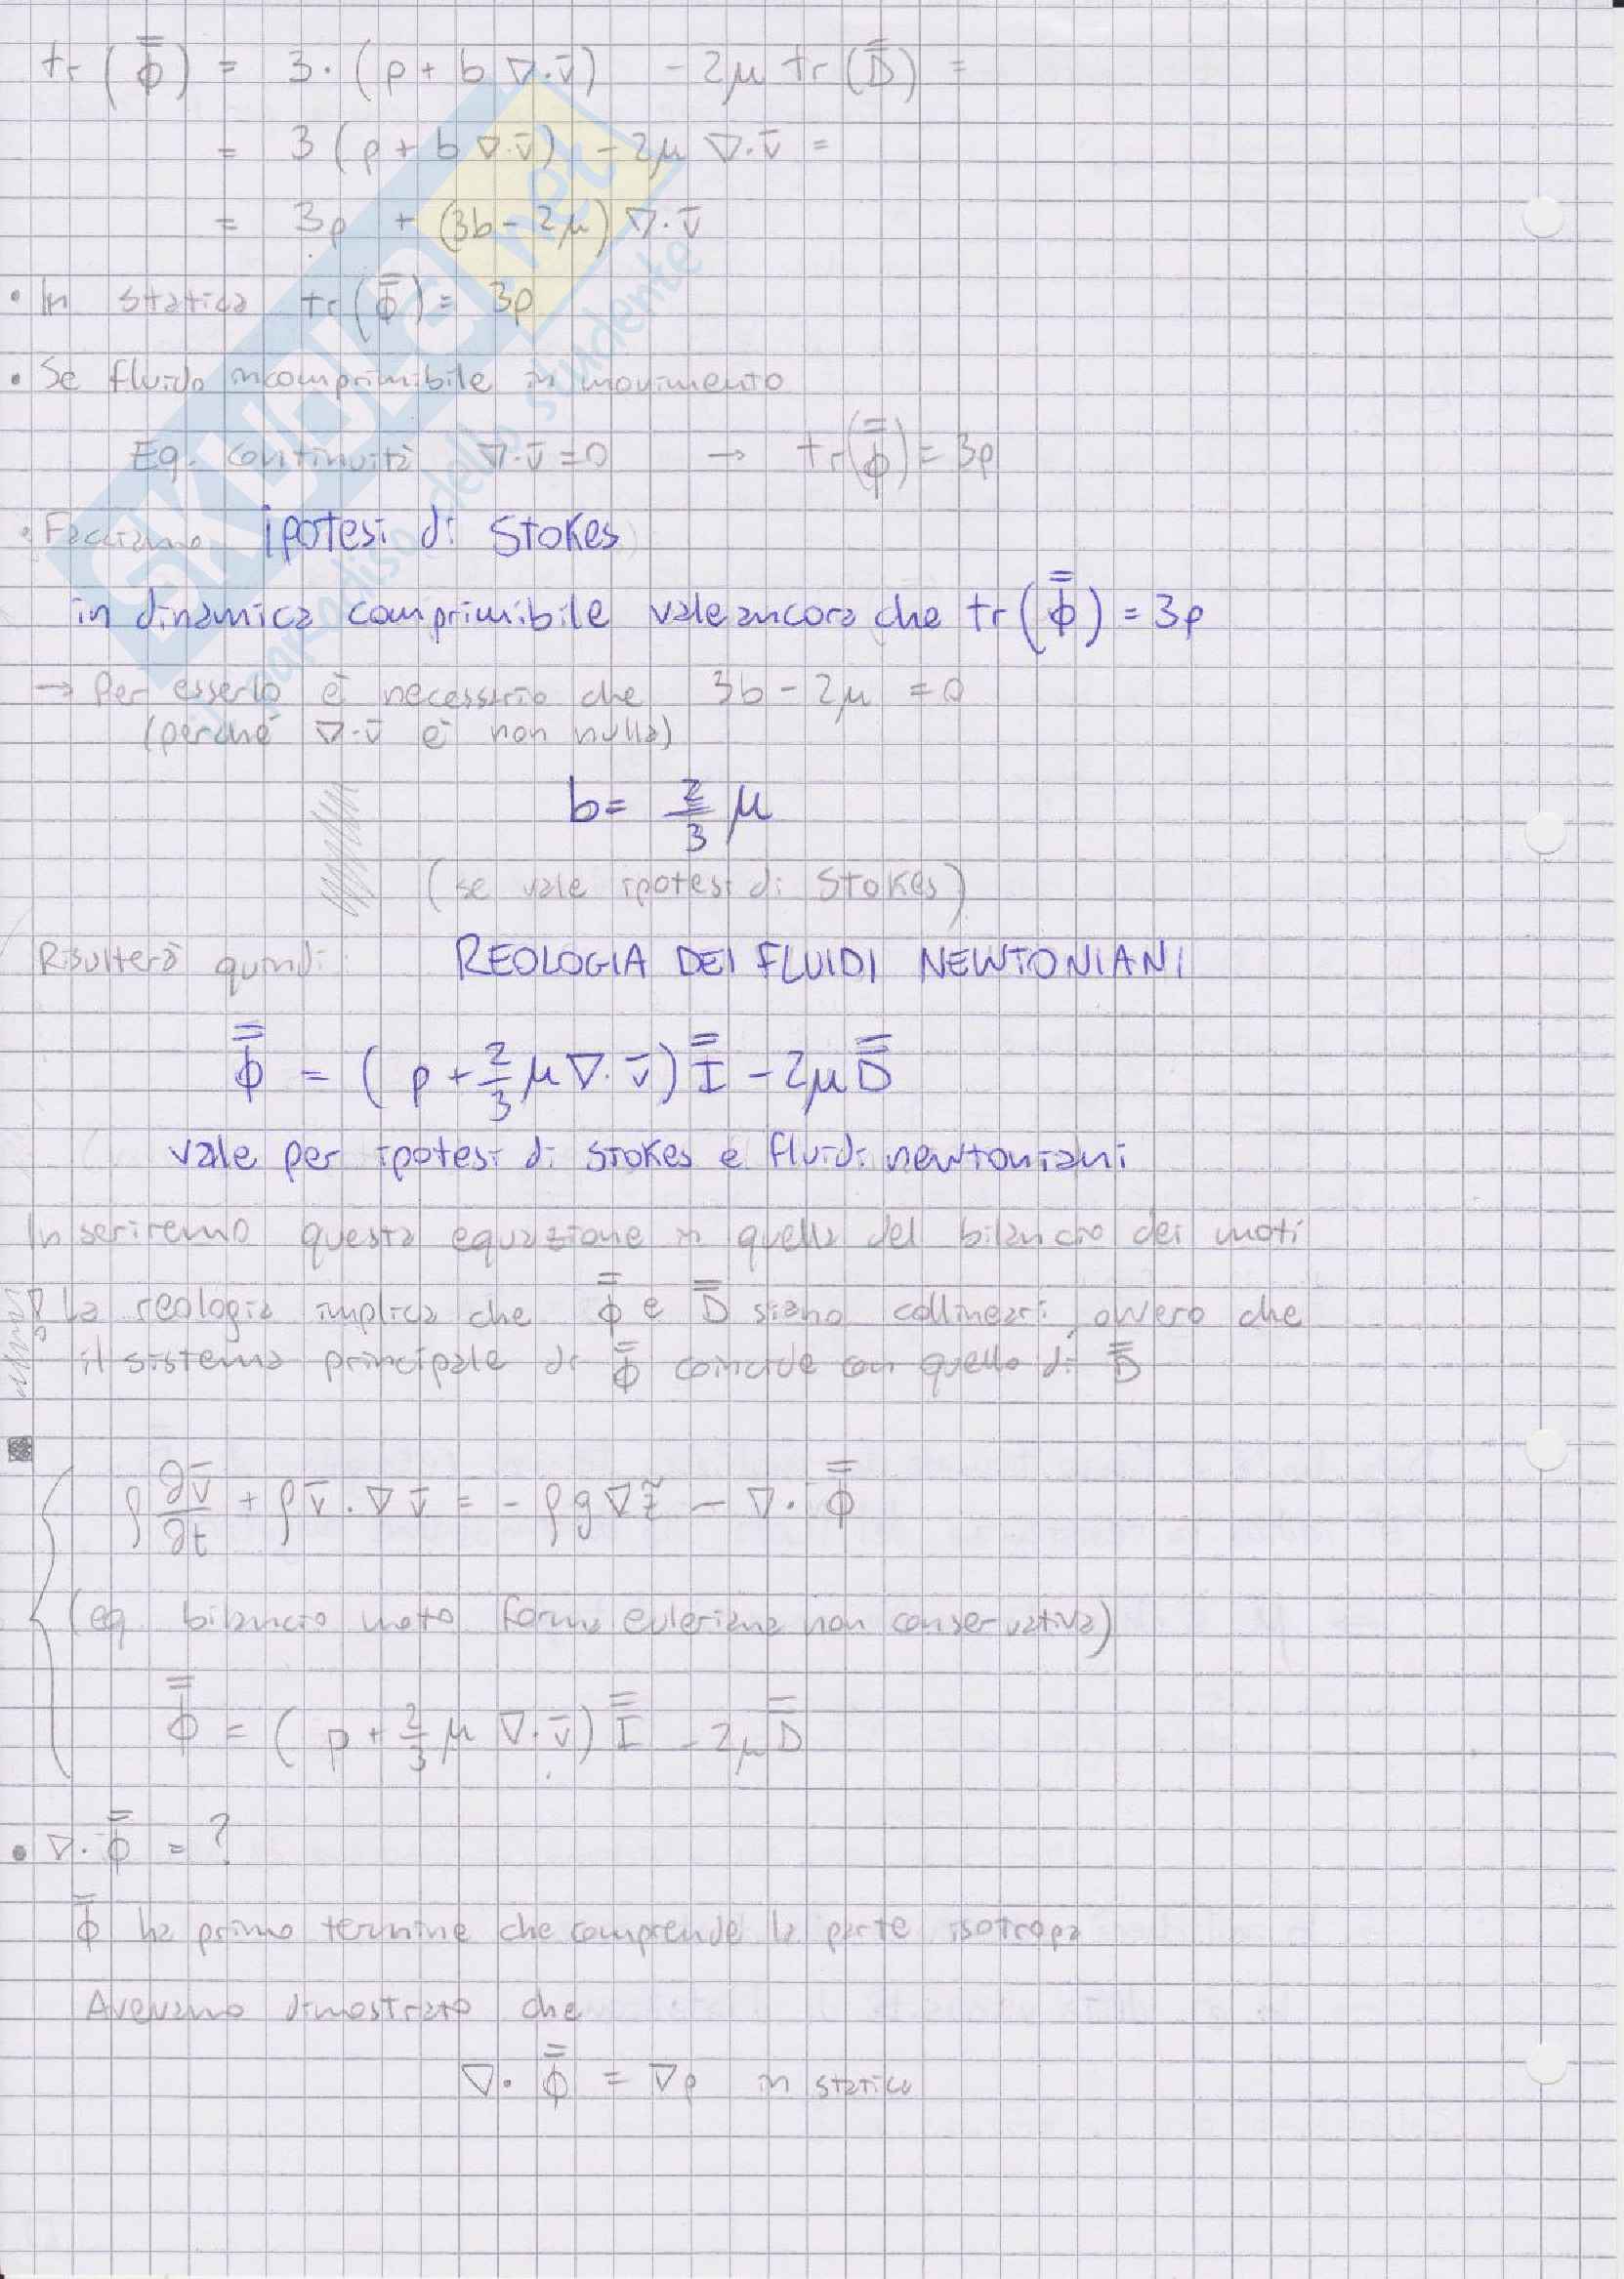 tr(Φ̿) = 3·(p + b ∇·v̄) - 2μ tr(D̿) =
= 3(p + b ∇·v̄) - 2μ ∇·v̄ =
= 3p + (3b - 2μ) ∇·v̄
• In statica tr(Φ̿) = 3p
• Se fluido incomprimibile in movimento
Eq. continuità ∇·v̄ = 0 → tr(Φ̿) = 3p
• Facciamo ipotesi di Stokes
in dinamica comprimibile vale ancora che tr(Φ̿) = 3p
→ Per esserlo è necessario che 3b - 2μ = 0
(perché ∇·v̄ è non nulla)
b = 2/3 μ
(se vale ipotesi di Stokes)
Risulterà quindi: REOLOGIA DEI FLUIDI NEWTONIANI
Φ̿ = (p + 2/3 μ ∇·v̄) I̿ - 2μ D̿
vale per ipotesi di Stokes e fluidi newtoniani
Inseriremo questa equazione in quella del bilancio dei moti
La reologia implica che Φ̿ e D̿ siano collineari, ovvero che
il sistema principale di Φ̿ coincide con quello di D̿
ρ ∂v̄/∂t + ρ v̄·∇v̄ = - ρg∇z̃ - ∇·Φ̿
(eq. bilancio moto forma euleriana non conservativa)
Φ̿ = (p + 2/3 μ ∇·v̄) I̿ - 2μ D̿
• ∇·Φ̿ = ?
Φ̿ ha primo termine che comprende la parte isotropa
Avevamo dimostrato che
∇·Φ̿ = ∇p in statica
SKUOLA.net
il paradiso dello studente